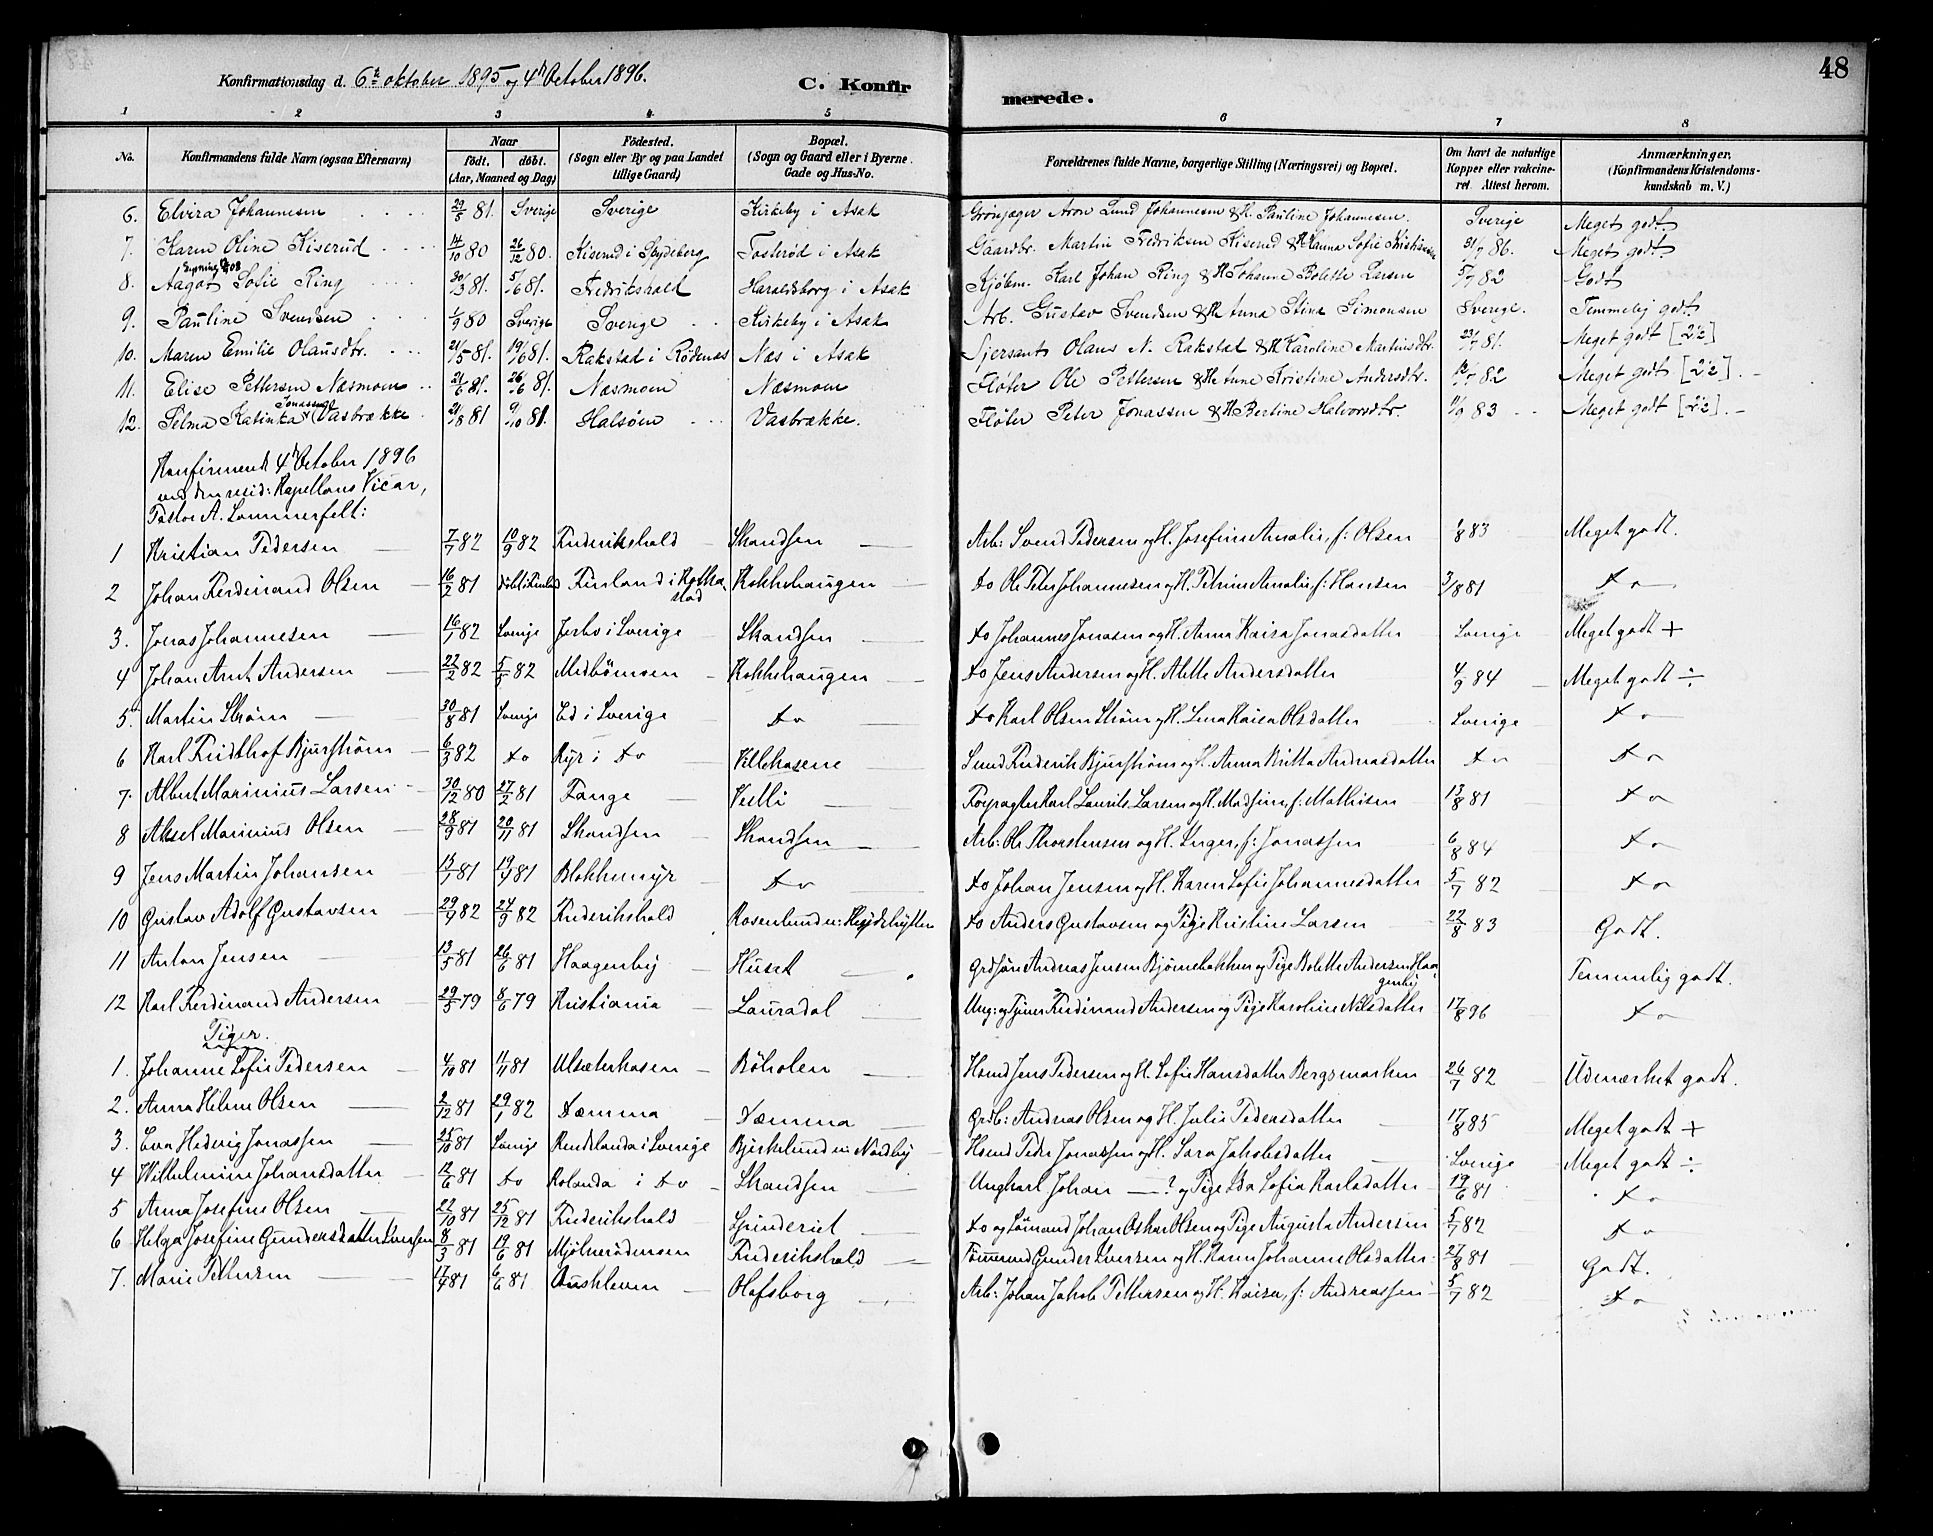 48
Konfirmationsdag d. 6te oktober 1895 og 4d October 1896. C. Konfirmerede.
1 2 3 4. 5 6 7 8
No. Konfirmandens fulde Navn (ogsaa Efternavn) Naar født. døbt. (Aar, Maaned og Dag) Fødested. (Sogn eller By og paa Landet tillige Gaard) Bopæl. (Sogn og Gaard eller i Byerne Gade og Hus-No. Forældrenes fulde Navne, borgerlige Stilling (Næringsvei) og Bopæl. Om havt de naturlige Kopper eller vakcineret. Attest herom. Anmærkninger. (Konfirmandens Kristendomskundskab m. V.)
6. Elvira Johannesen 29/5 81. Sverige Sverige Kirkeby i Asak Grönjæger Aron Lund Johannesen & H. Pauline Johannesen. Sverige Meget godt
7. Karen Oline Kiserud 14/10 80 26/12 80. Kiserud i Spydeberg Tosterød i Asak Gaardbr. Martin Fredriksen Kiserud & H. Hanna Sofie Kristiansen 31/7 86. Meget godt
8. Aagot Sofie Ring 30/3 81. 5/6 81. Fredrikshald Haraldsborg i Asak Kjøbm. Karl Johan Ring & H Johanne Bolette Larsen 5/7 82 Godt
9. Pauline Svendsen 1/9 80 Sverige Sverige Kirkeby i Asak Arb. Gustav Svendsen & H Anna Stina Simonsen Sverige. Temmelig godt
10. Maren Emilie Olausdtr. 21/5 81. 19/6 81. Rakstad i Rödenæs Næs i Asak Sjersant Olaus N. Rakstad & H Karoline Martinsdtr. 23/7 81. Meget godt [2½]
11. Elise Pettersen Næsmoen 21/6 81. 26/6 81. Næsmoen Næsmoen Fløter Ole Pettersen & H Ane Kristine Andersdtr. 12/7 82 Meget godt [2½].
12. Selma Katinka Jonassen (Vasbrække 21/8 81 9/10 81. Halsøen Vasbrække. Fløter Peter Jonassen & H Bertine Halvorsdtr. 11/9 83 Meget godt [2½].
Konfirmered 4d October 1896
ved den resid: Kapellans Vicar,
Pastor A. Sommerfelt:
1 Kristian Pedersen 7/7 82 10/9 82 Frederikshald Skandsen Arb: Svend Pedersen og H. Josefine Amalie, f: Olsen 1/8 83 Meget godt.
2 Johan Ferdinand Olsen 16/2 81 døbt i Finland Finland i Kotkastad Kokkehaugen do Ole Peter Johannesen og H. Petrine Amalie, f: Hansen 3/8 81 do
3. Jonas Johannesen 16/1 82 Sverige Jerbo i Sverige Skandsen do Johannes Jonasen og H. Anna Kaisa Jonasdatter Sverige Meget godt +
4 Johan Arnt Andersen 22/2 82 5/5 82 Midbömoen Kokkehaugen do Jens Andersen og H. Alette Andersdatter 4/9 84 Meget godt ÷
5. Martin Strøm 30/8 81 Sverige Ed i Sverige do do Karl Olsen Strøm og H. Lena Kaisa Olsdatter Sverige do
6 Karl Fridthof Bjurstrøm 6/3 82 do Ryr i do Villehasene Smed Frederik Bjurstrøm og H. Anna Britta Andreasdatter do do
7. Albert Marinius Larsen 30/12 80 27/2 81 Tange Veelli Forpagter Karl Laurits Larsen og H. Madsine, f: Mathisen 13/8 81 do
8 Aksel Marinius Olsen 28/9 81 20/11 81 Skandsen Skandsen Arb: Ole Thorstensen og H. Inger, f: Jonassen 6/8 84 do
9 Jens Martin Johansen 15/1 81 19/4 81 Blokkemyr do do Johan Jensen og H. Karen Sofie Johannesdatter 5/7 82 do
10 Gustav Adolf Gustavsen 29/7 82 24/9 82 Frederikshald Rosenlund do Anders Gustavsen og Pige Kristine Larsen 22/8 83 Godt.
11 Anton Jensen 13/5 81 26/6 81 Haagenby Huset Grdsøn Andreas Jensen Bjørnebakken og Pige Bolette Andersen Haagenby Temmelig godt.
12 Karl Ferdinand Andersen 29/3 79 8/6 79 Kristiania Lauradal Ung: og Tjener Ferdinand Andersen og Pige Karoline Nilsdatter 17/8 96 do
Piger.
1. Johanne Sofie Pedersen 4/10 81 11/11 81 Ulsæterhasen Böholen Hsmd Jens Pedersen og H. Sofie Hansdatter Bergsmarken 26/7 82 Udmærket godt.
2. Anna Helene Olsen 2/12 81 29/1 82 Dæmma Dæmma Grdb: Andreas Olsen og H. Julie Pedersdatter 17/8 85 Meget godt +
3. Eva Hedvig Jonassen 25/10 81 Sverige i Sverige Bjerkelund Nordby Hsmd Peder Jonassen og H. Sara Jakobsdatter Sverige Meget godt ÷
4 Wilhelmine Johansdatter 12/6 81 do Rolanda i do Skandsen Ungkarl Johan —? og Pige Ida Sofia Karlsdatter 19/6 81 do
5 Anna Josefine Olsen 22/10 81 25/12 81 Frederikshald Spinderiet do og Sømand Johan Oskar Olsen og Pige Augusta Andersen 5/7 82 do
6 Helga Josefine Gundersdatter Iversen 8/3 81 19/6 81 Mjølnerödmoen Frederikshald Tømmermd Gunder Iversen og H. Karen Johanne Olsdatter 27/8 81 Godt.
7. Marie Pettersen 17/4 81 6/6 81 Aushleven Olafsborg Arb: Johan Jakob Pettersen og H. Kaisa, f: Andreassen 5/7 82 do